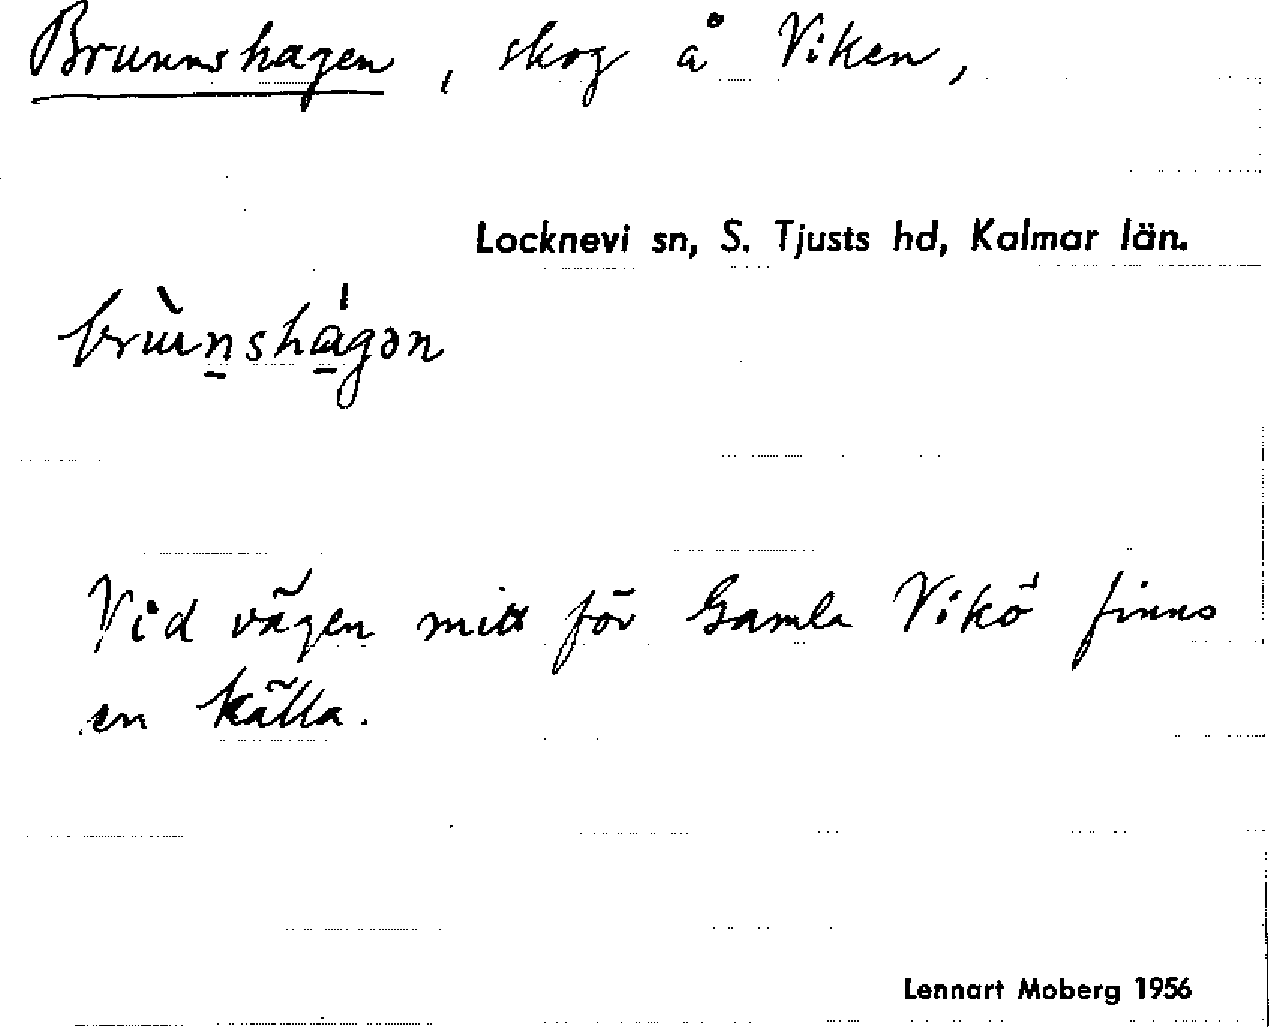 Brunnshagen, skog å Viken,
Locknevi sn, S. Tjusts hd, Kalmar län.
brùn̠shá̠gən
Vid vägen mitt för Gamla Vikö finns
en källa.
Lennart Moberg 1956